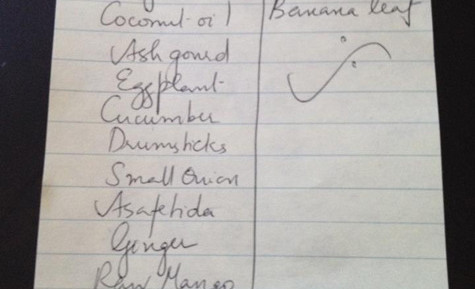 Coconut oil
Ash gourd
Eggplant
Cucumber
Drumsticks
Small Onion
Asafetida
Ginger
Raw Mango
Banana leaf